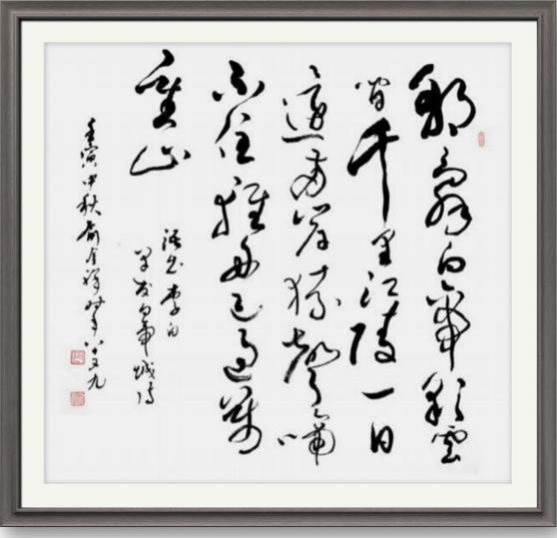 朝辭白帝彩雲
間千里江陵一日
還兩岸猿聲啼
不住輕舟已過萬
重山
語出李白
早发白帝城诗
壬寅中秋 时年八又九